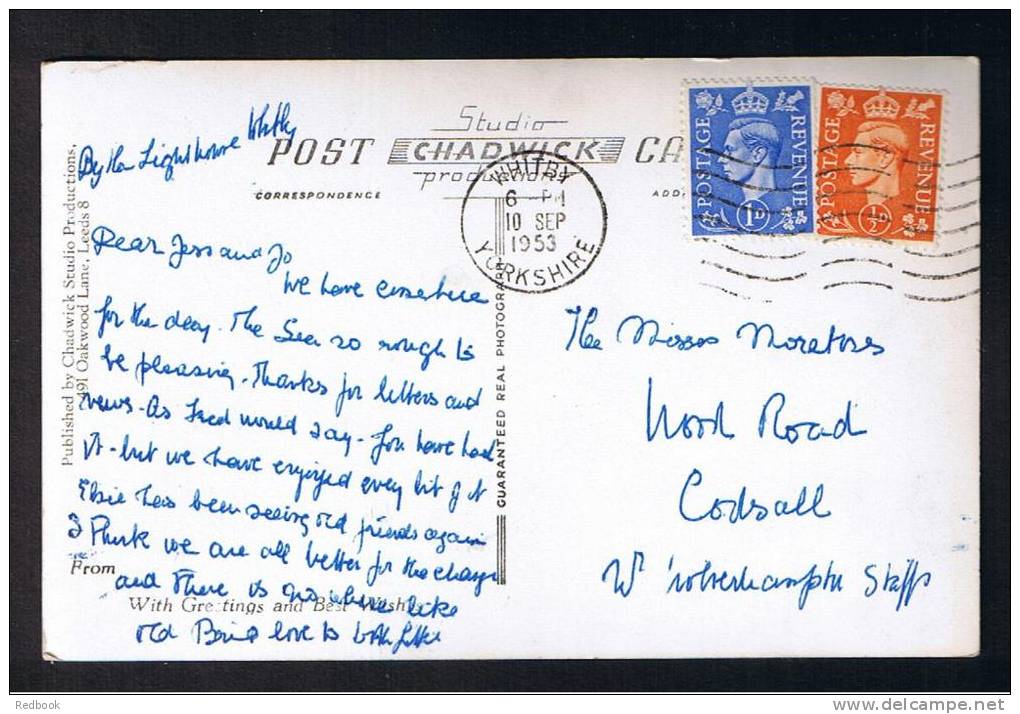 By the Lighthouse Whitby
POST Studio CHADWICK productions CA
CORRESPONDENCE ADD
WHITBY
6 - PM
10 SEP
1953
YORKSHIRE
POSTAGE REVENUE
1D
POSTAGE REVENUE
½D
Published by Chadwick Studio Productions,
491 Oakwood Lane, Leeds 8
GUARANTEED REAL PHOTOGRAPH
Dear Jess and Jo
We have come here
for the day. The Sea so rough to
be pleasing. Thanks for letters and
news. As Fred would say - you have had
it - but we have enjoyed every bit of it
Elsie has been seeing old friends again
I think we are all better for the change
and there is no where like
old love to both
From
With Greetings and Best Wishes
The Misses
Wood Road
Codsall
Wolverhampton Staffs
Redbook
delcampe.net